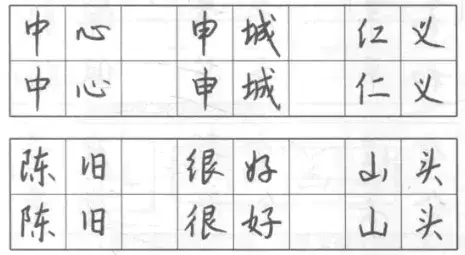 中心 申城 仁义
中心 申城 仁义
陈旧 很好 山头
陈旧 很好 山头